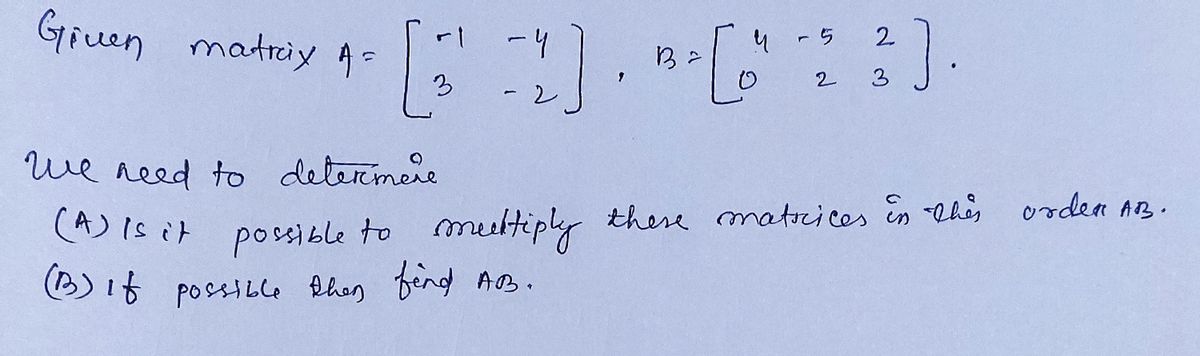 Given matrix A = [ -1 -4 ] , B = [ 4 -5 2 ] .
[ 3 -2 ] [ 0 2 3 ]
We need to determine
(A) Is it possible to multiply these matrices in this order AB.
(B) If possible then find AB.